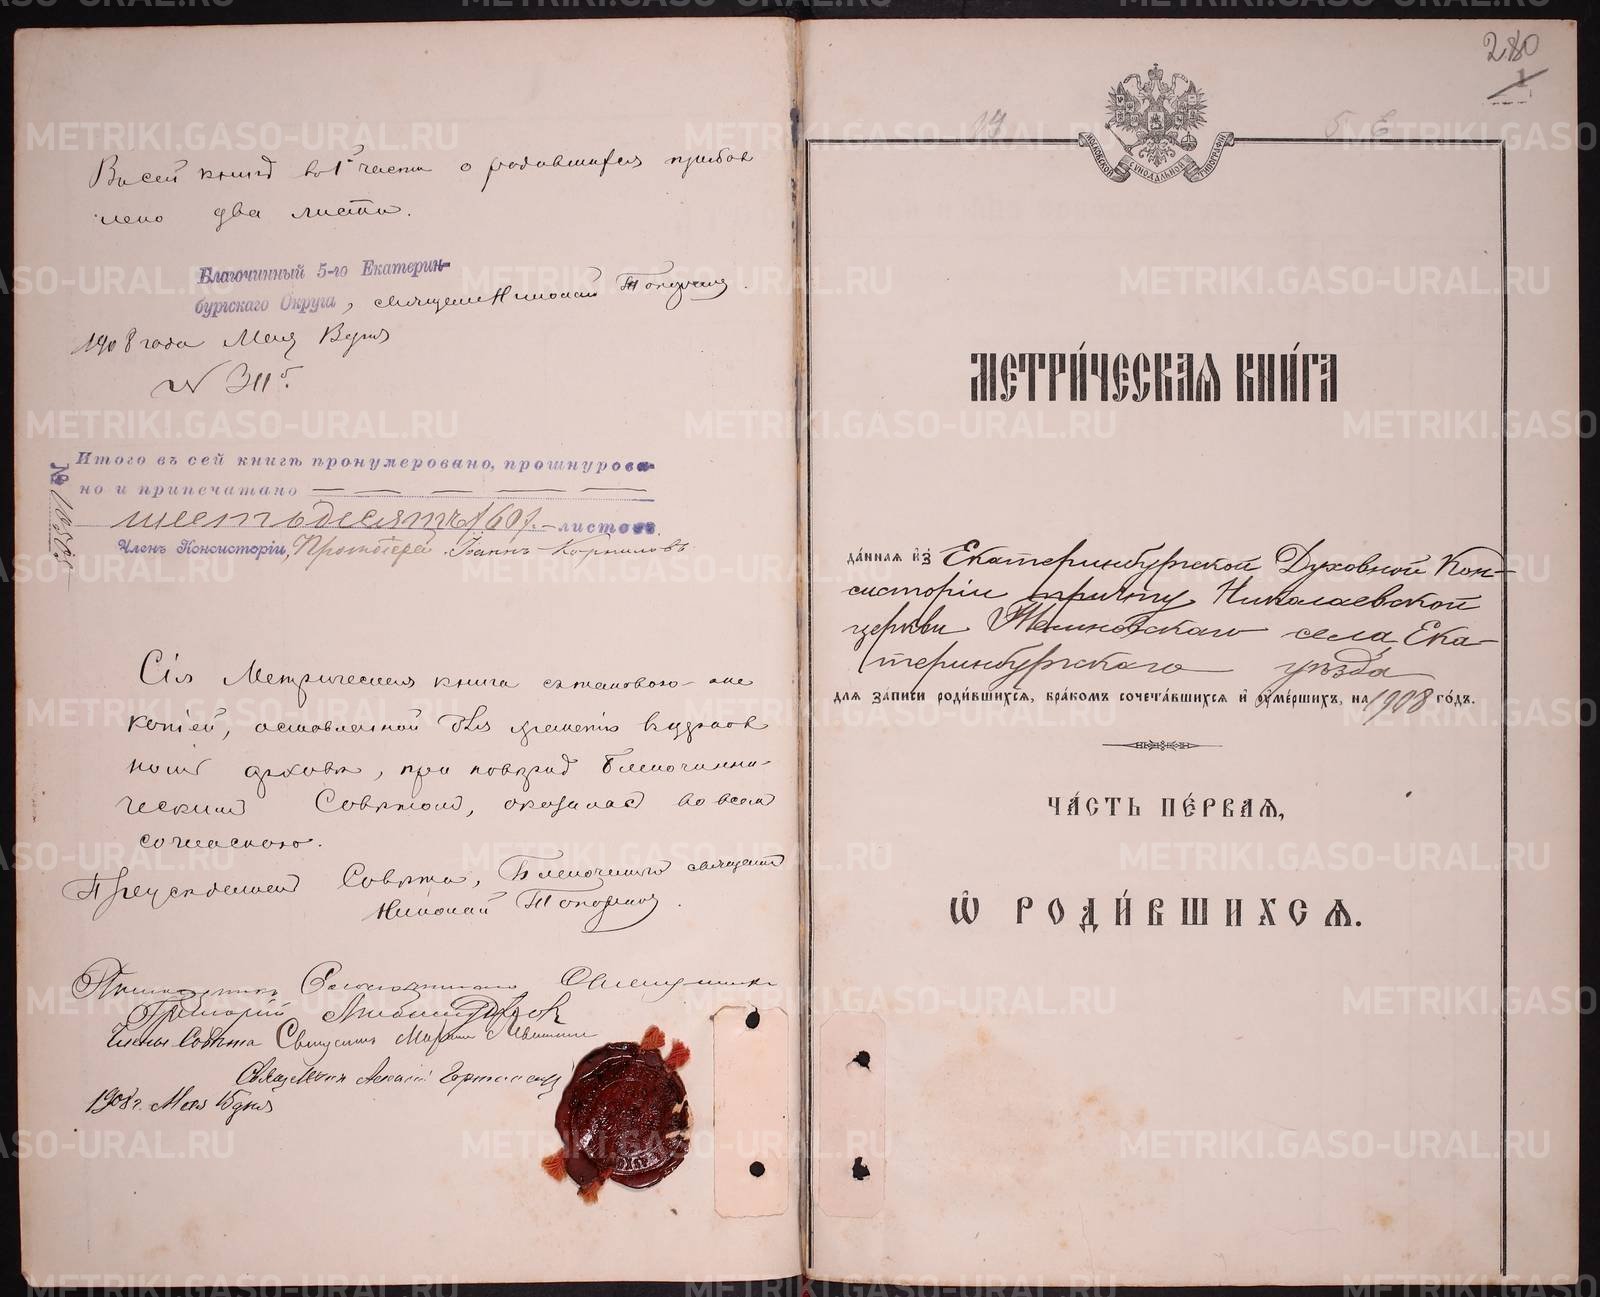 В сей книгѣ в 1 части о родившихся прибав
лено два листа.
Благочинный 5-го Екатерин-
бургскаго Округа, священ. Николай Топорковъ.
1908 года Мая 8 дня
№ 311
Итого въ сей книгѣ пронумеровано, прошнурова-
но и припечатано
шестьдесятъ /60/ листовъ.
Членъ Консисторіи, Протоіерей Іоаннъ Корниловъ
№
Сія Метрическая книга съ таковою-же
копіей, оставленной для храненія въ церков
номъ архивѣ, при повѣркѣ Благочинни-
ческимъ Совѣтомъ, оказалась во всемъ
согласною.
Предсѣдатель Совѣта, Благочинный священникъ
Николай Топорковъ.
Священникъ
Григорій
Члены Совѣта Священникъ
Священникъ
1908 г. Мая 15 дня
280
1
МОСКОВСКОЙ СѴНОДАЛЬНОЙ ТИПОГРАФІИ
МЕТРИ́ЧЕСКАѦ КНИ́ГА
да́ннаѧ и҆з̾ Екатеринбургской Духовной Кон-
систоріи причту Николаевской
церкви села, Ека-
теринбургскаго уѣзда
для за́писи роди́вшихсѧ, бра́комъ сочета́вшихсѧ и҆ ᲂу҆ме́ршихъ, на 1908 го́дъ.
ЧА́СТЬ ПЕ́РВАѦ,
Ѽ РОДИ́ВШИХСѦ.
METRIKI.GASO-URAL.RU